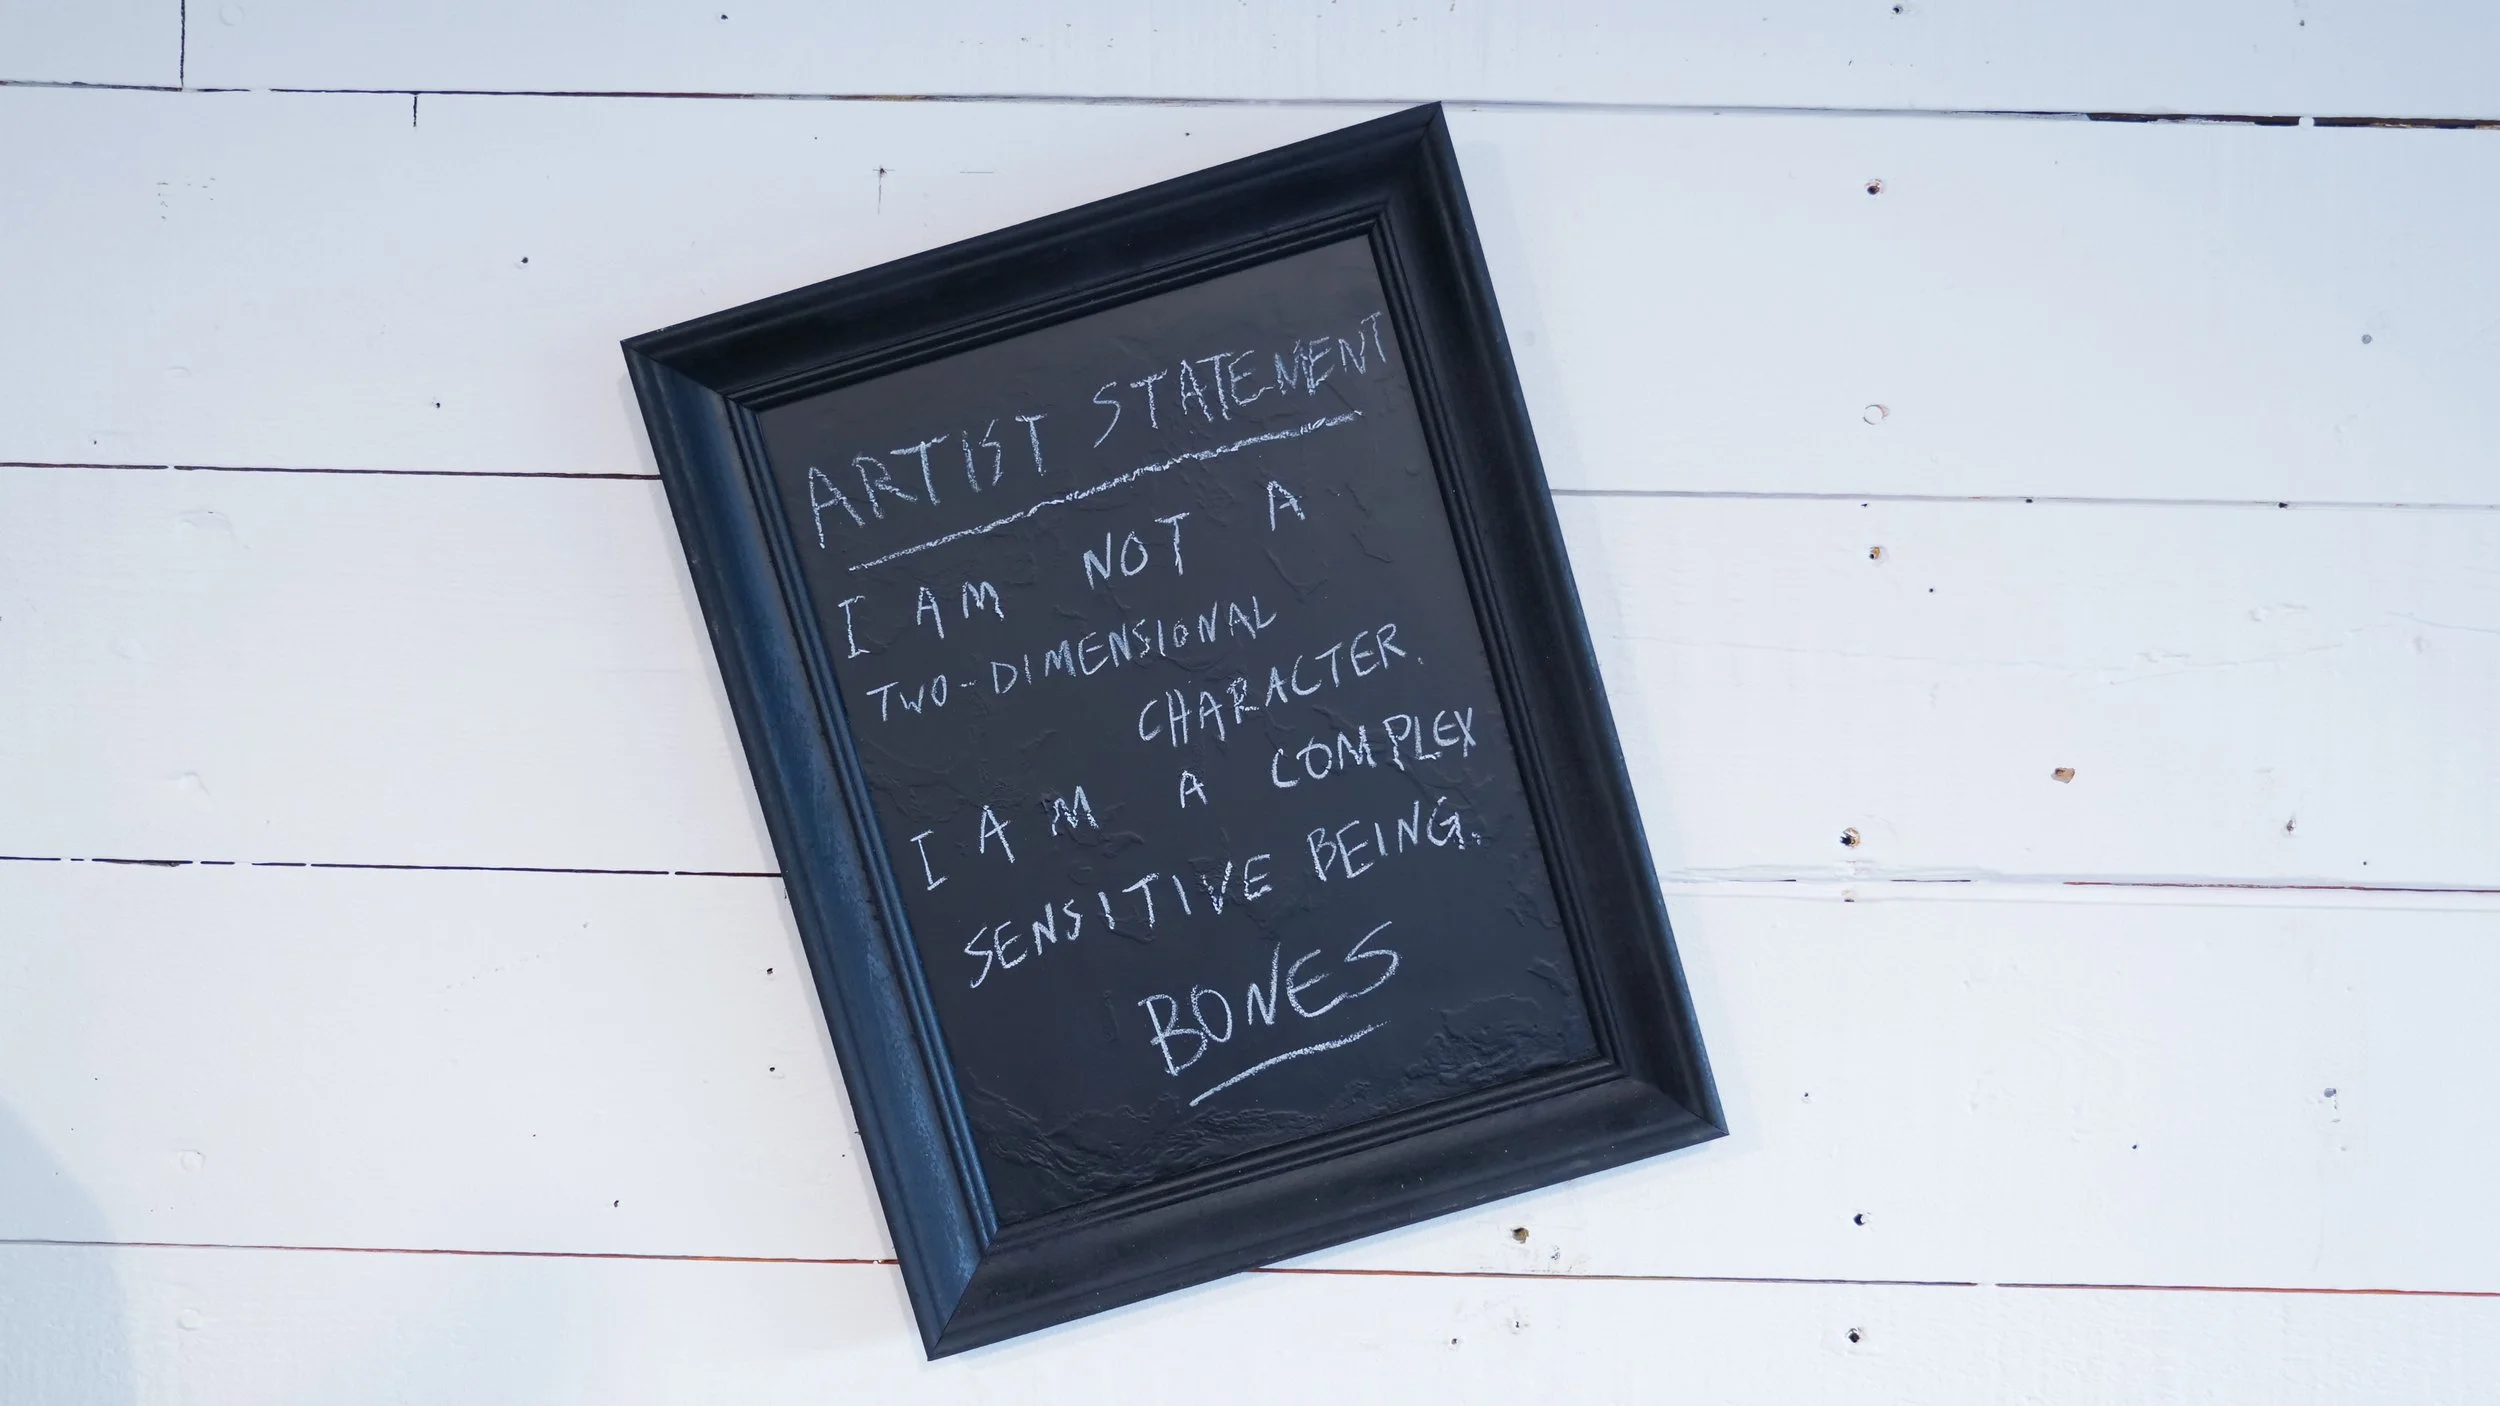 ARTIST STATEMENT
I AM NOT A
TWO-DIMENSIONAL
CHARACTER.
I AM A COMPLEX
SENSITIVE BEING.
BONES